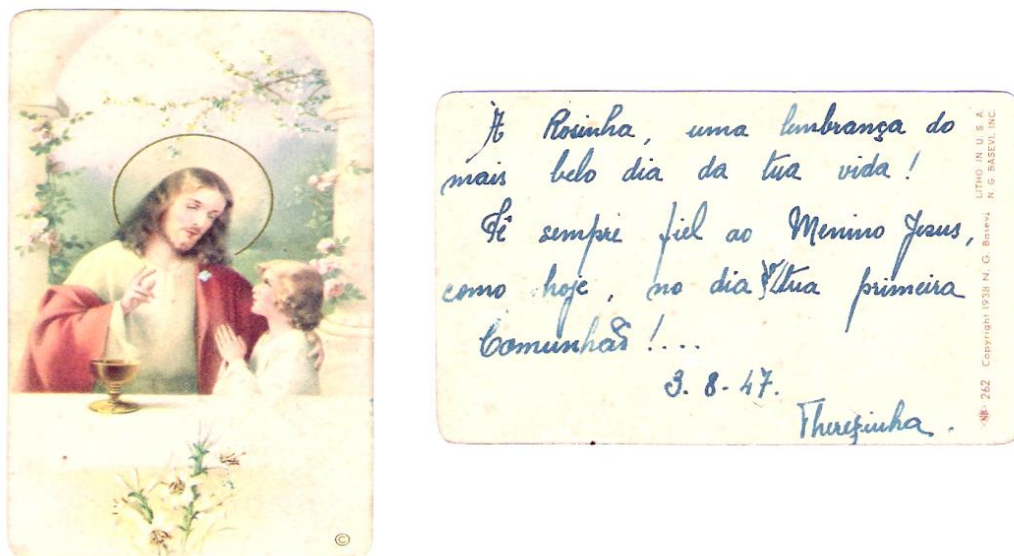 ©
À Rosinha, uma lembrança do
mais belo dia da tua vida!
Sê sempre fiel ao Menino Jesus,
como hoje, no dia tua primeira
Comunhão!...
3. 8 - 47.
Therezinha.
NB 262 Copyright 1938 N. G. Basevi LITHO IN U. S. A.
N. G. BASEVI, INC.